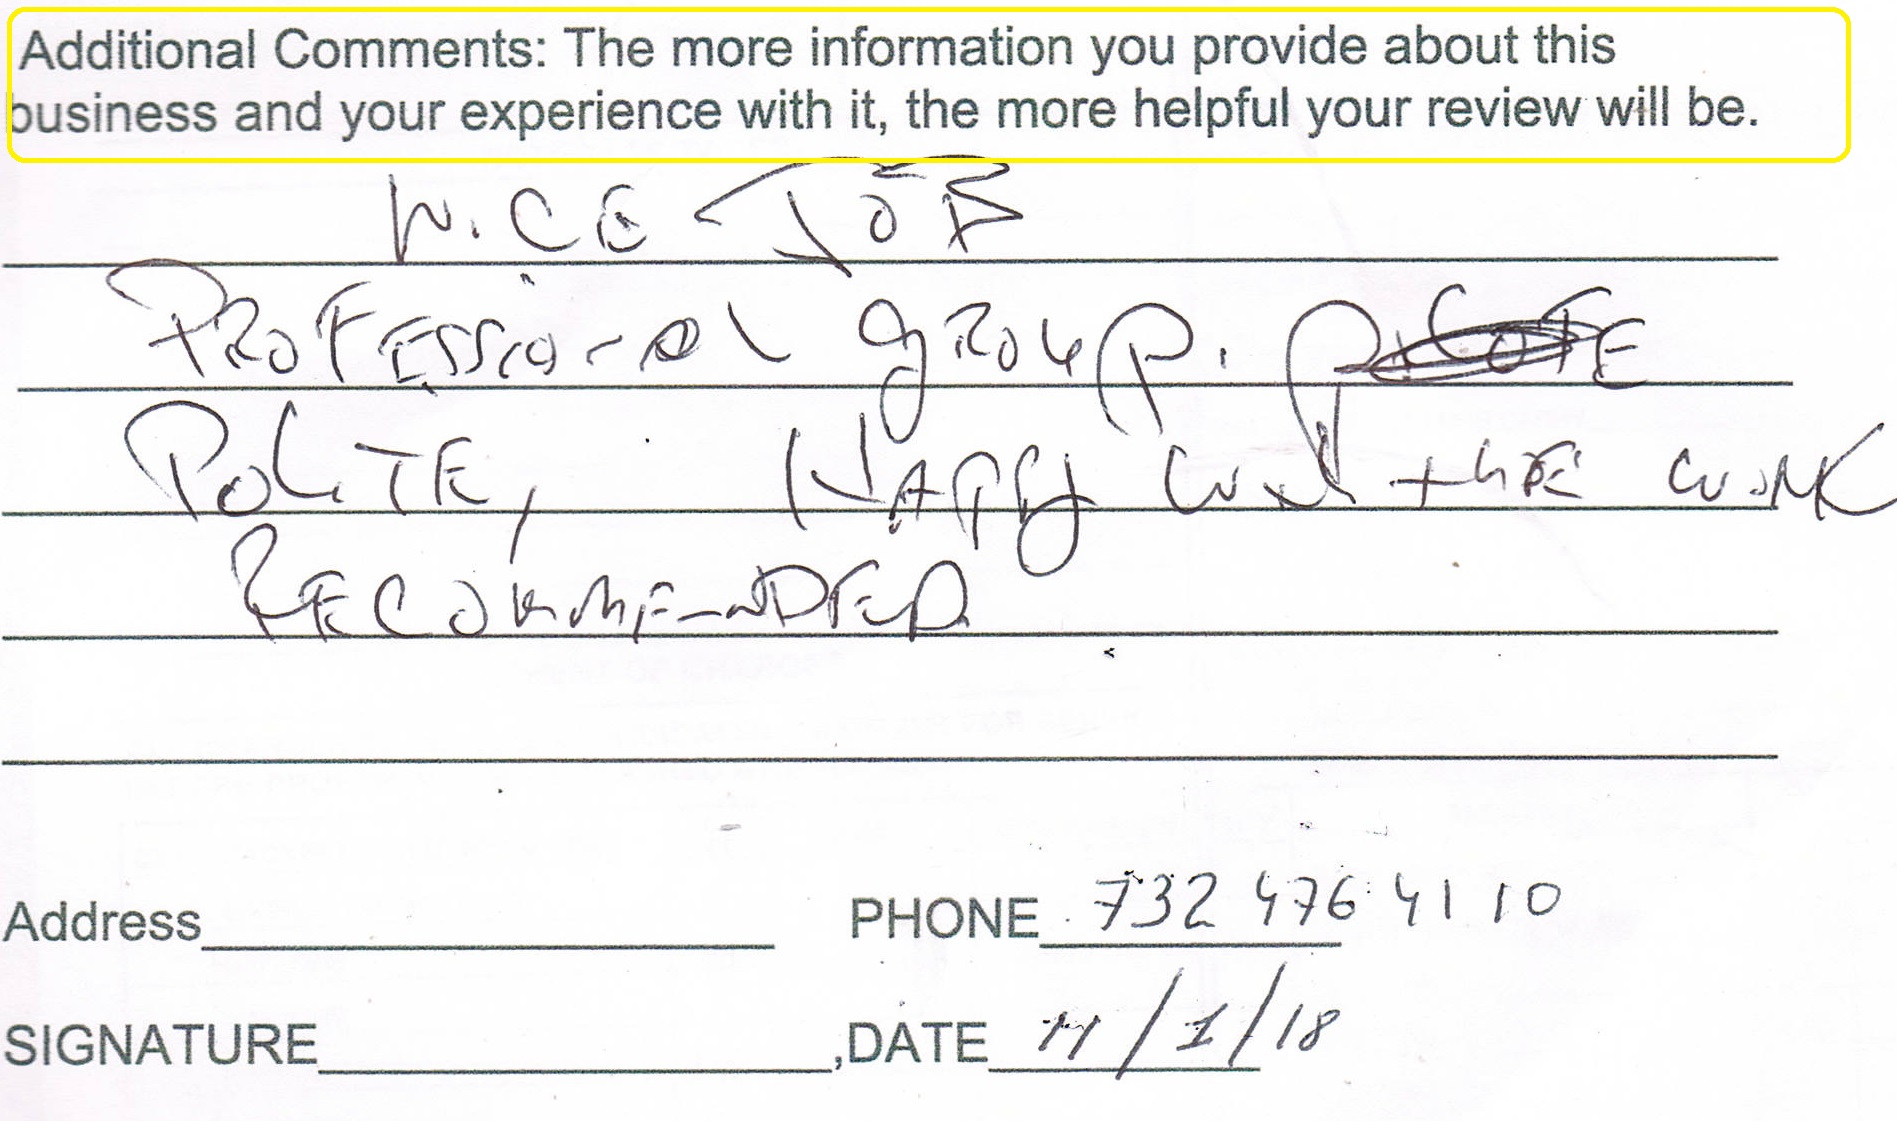 Additional Comments: The more information you provide about this
business and your experience with it, the more helpful your review will be.
NICE JOB
PROFESSIONAL group.
POLITE, HAPPY with THE WORK
RECOMMENDED
Address PHONE 732 476 4110
SIGNATURE ,DATE 11/1/18